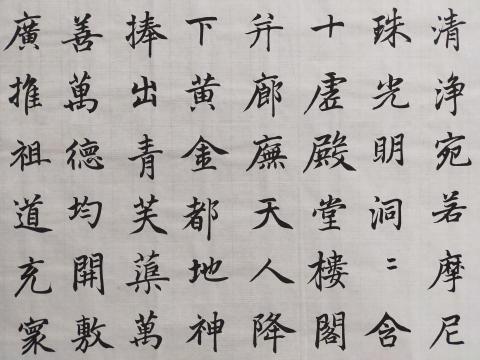 清淨宛若摩尼
珠光明洞〻含
十虛殿堂樓閣
并廊廡天人降
下黄金都地神
捧出青芙蕖萬
善萬德均開敷
廣推祖道充寰